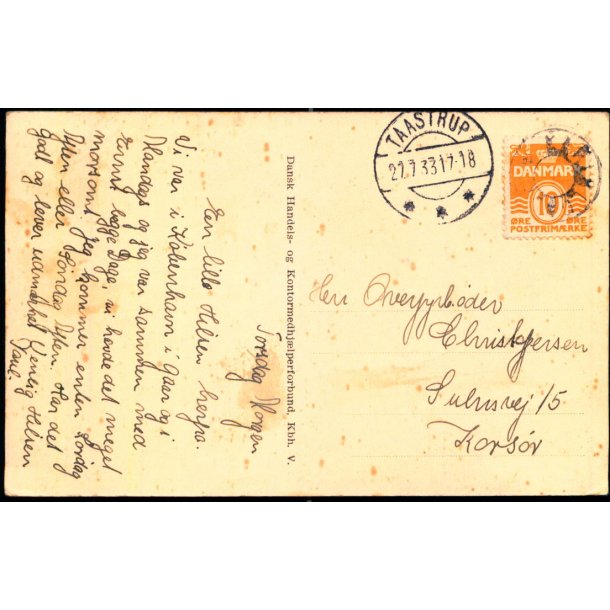 Torsdag Morgen
Een lille Hilsen herfra.
Vi var i København i Gaar og i
Mandags og jeg var sammen med
Ernst begge Dage, vi havde det meget
morsomt. Jeg kommer enten Lørdag
Aften eller Søndag Aften. Har det
godt og lever udmærket. Venlig Hilsen
Dansk Handels- og Kontormedhjælperforbund, Kbh. V.
TAASTRUP
27.7.33 17-18
DANMARK
10
ØRE ØRE
POSTFRIMÆRKE
Hrr Overfyrbøder
Christjersen
Korsør